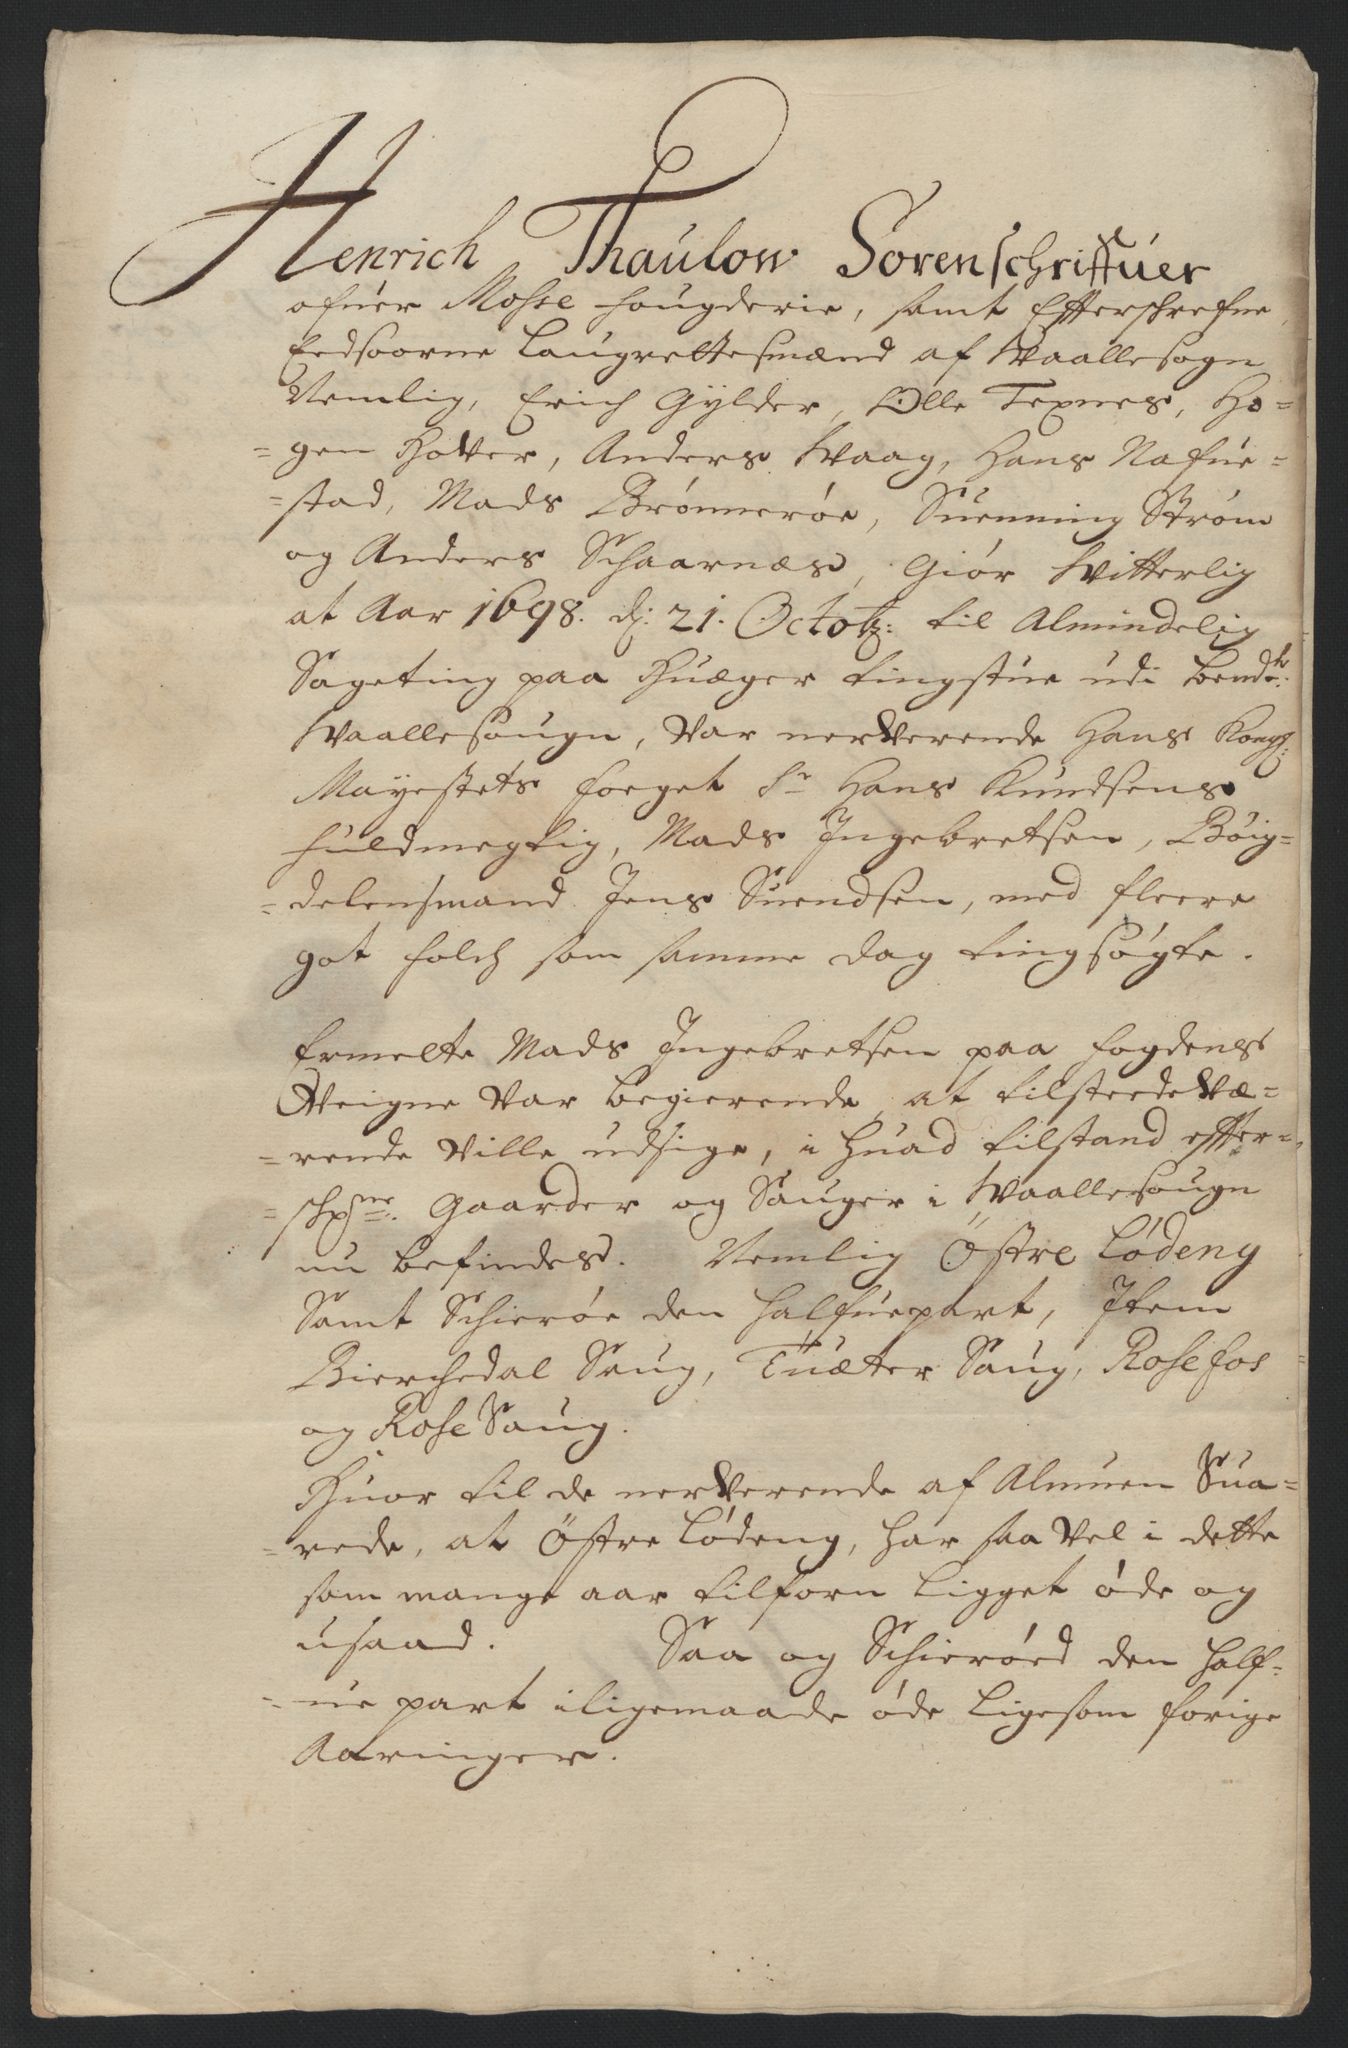 Henrich Thaulow Sorenschriffuer
ofuer Mosse fougderie, samt Effterschrefne
Eedsoorne Laugrettesmænd af Waallesogn
Nemlig, Erich Gylder, Olle Texnes, Ho=
=gen Hotter, Anders Waag, Hans Nafue=
=stad, Mads Brønnerøe, Suenning Strøm
og Anders Schaarnæs, Giør Witterlig
at Aar 1698. d: 21. Octob: til Almindelig
Sageting paa Huæger tingstue udi bemte:
Waallesougn, Var nerVerende Hans Kongl:
Mayestets foeget Sr Hans Knudsens
fuldmegtig, Mads Ingebretsen, Bøig=
=delensmand Jens Suendsen, med fleere
got folch som samme dag tingsøgte.
Ermelte Mads Ingebretsen paa fogdens
Weigne Var begierende, at tilsteedeVæ=
=rende Ville udsige, i huad tilstand effter=
=schrne: Gaarder og Sauger i Waallesougn
nu befindes. Nemlig Östre Lødeng
Samt Schierøe den halfuepart, Item
Bierchedal Saug, Tuæter Saug, Rosefos
og Rose Saug.
Huor til de nerVerende af Almuen Sua=
=rede, at Östre Lødeng, har saa Vel i dette
som mange aar tilforn Ligget øde og
usaad. Saa og Schierøed den half=
=ue part iligemaade øde Ligesom forige
Aaringer.